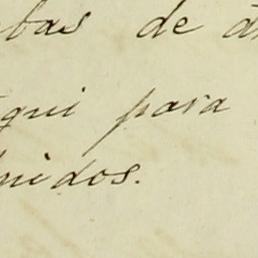 bas de
qui para
nidos.